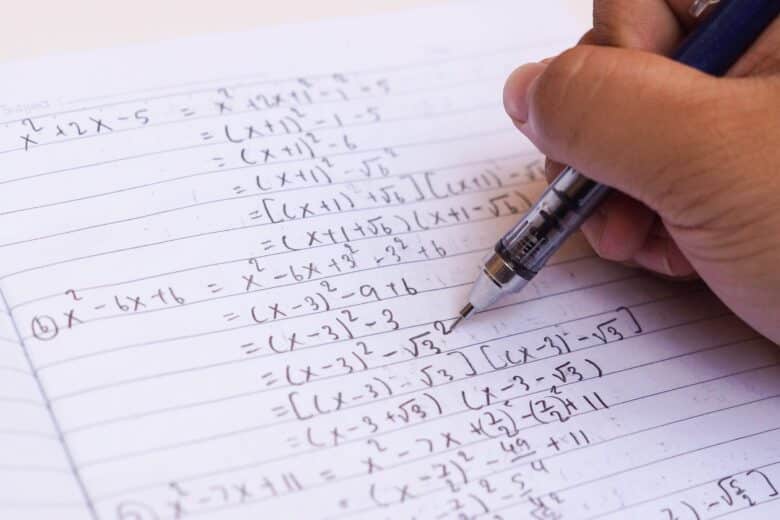 Subject
x² + 2x - 5 = x² + 2x + 1² - 1² - 5
= (x+1)² - 1 - 5
= (x+1)² - 6
= (x+1)² - √6²
= [(x+1) + √6] [(x+1) - √6
= (x+1+√6) (x+1-√6)
(b) x² - 6x + 6 = x² - 6x + 3² - 3² + 6
= (x-3)² - 9 + 6
= (x-3)² - 3
= (x-3)² - √3²
= [(x-3) - √3] [(x-3) - √3]
= (x-3+√3) (x-3-√3)
x² - 7x + 11 = x² - 7x + (7/2)² - (7/2)² + 11
= (x - 7/2)² - 49/4 + 11
)² - 5/4
) - √5/2]